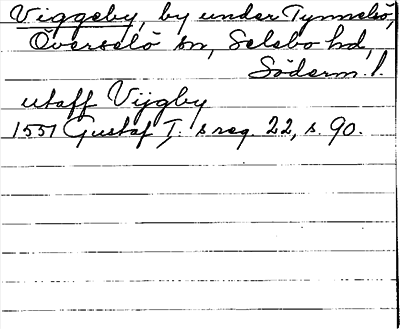 Viggeby, by under Tynnelsö,
Överselö sn, Selebo hd,
Söderm. l.
utaff Vijgby
1551 Gustaf I. s reg. 22, s. 90.